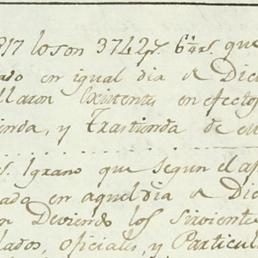 817 los on 3742 ps. 6 rs. que
ado en igual dia de Dic
llaron Existentes en efectos
ienda, y Trastienda de
s. 1 grano que segun el
ada en aquel dia de Dic
n Deviendo los sirviente
lados, oficiales, y Particul